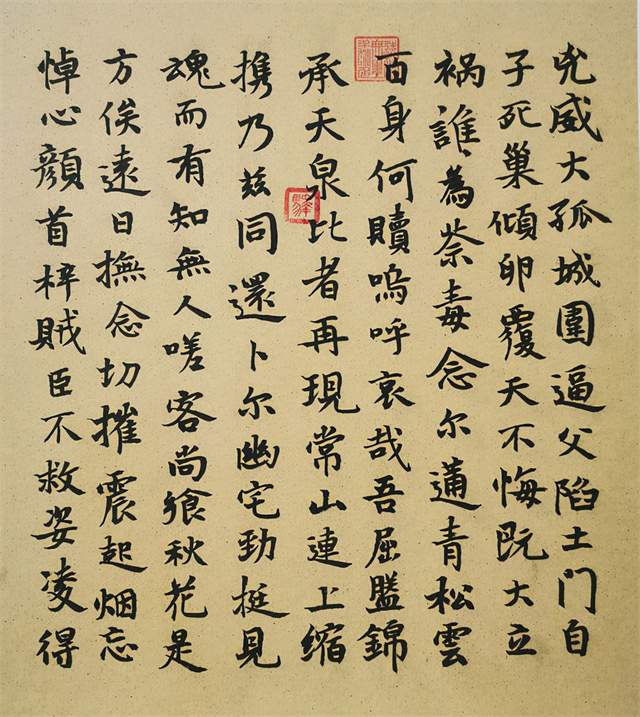 兇威大孤城圍逼父陷土門自
子死巢傾卵覆天不悔既大立
祸誰為荼毒念尔遘青松雲
百身何贖嗚呼哀哉吾屈錦
承天泉比者再現常山連上缩
攜乃兹同還卜尔幽宅勁挺見
魂而有知無人嗟客尚飨秋花是
方俟遠日撫念切摧震起烟忘
悼心顏首梓賊臣不救姿凌得